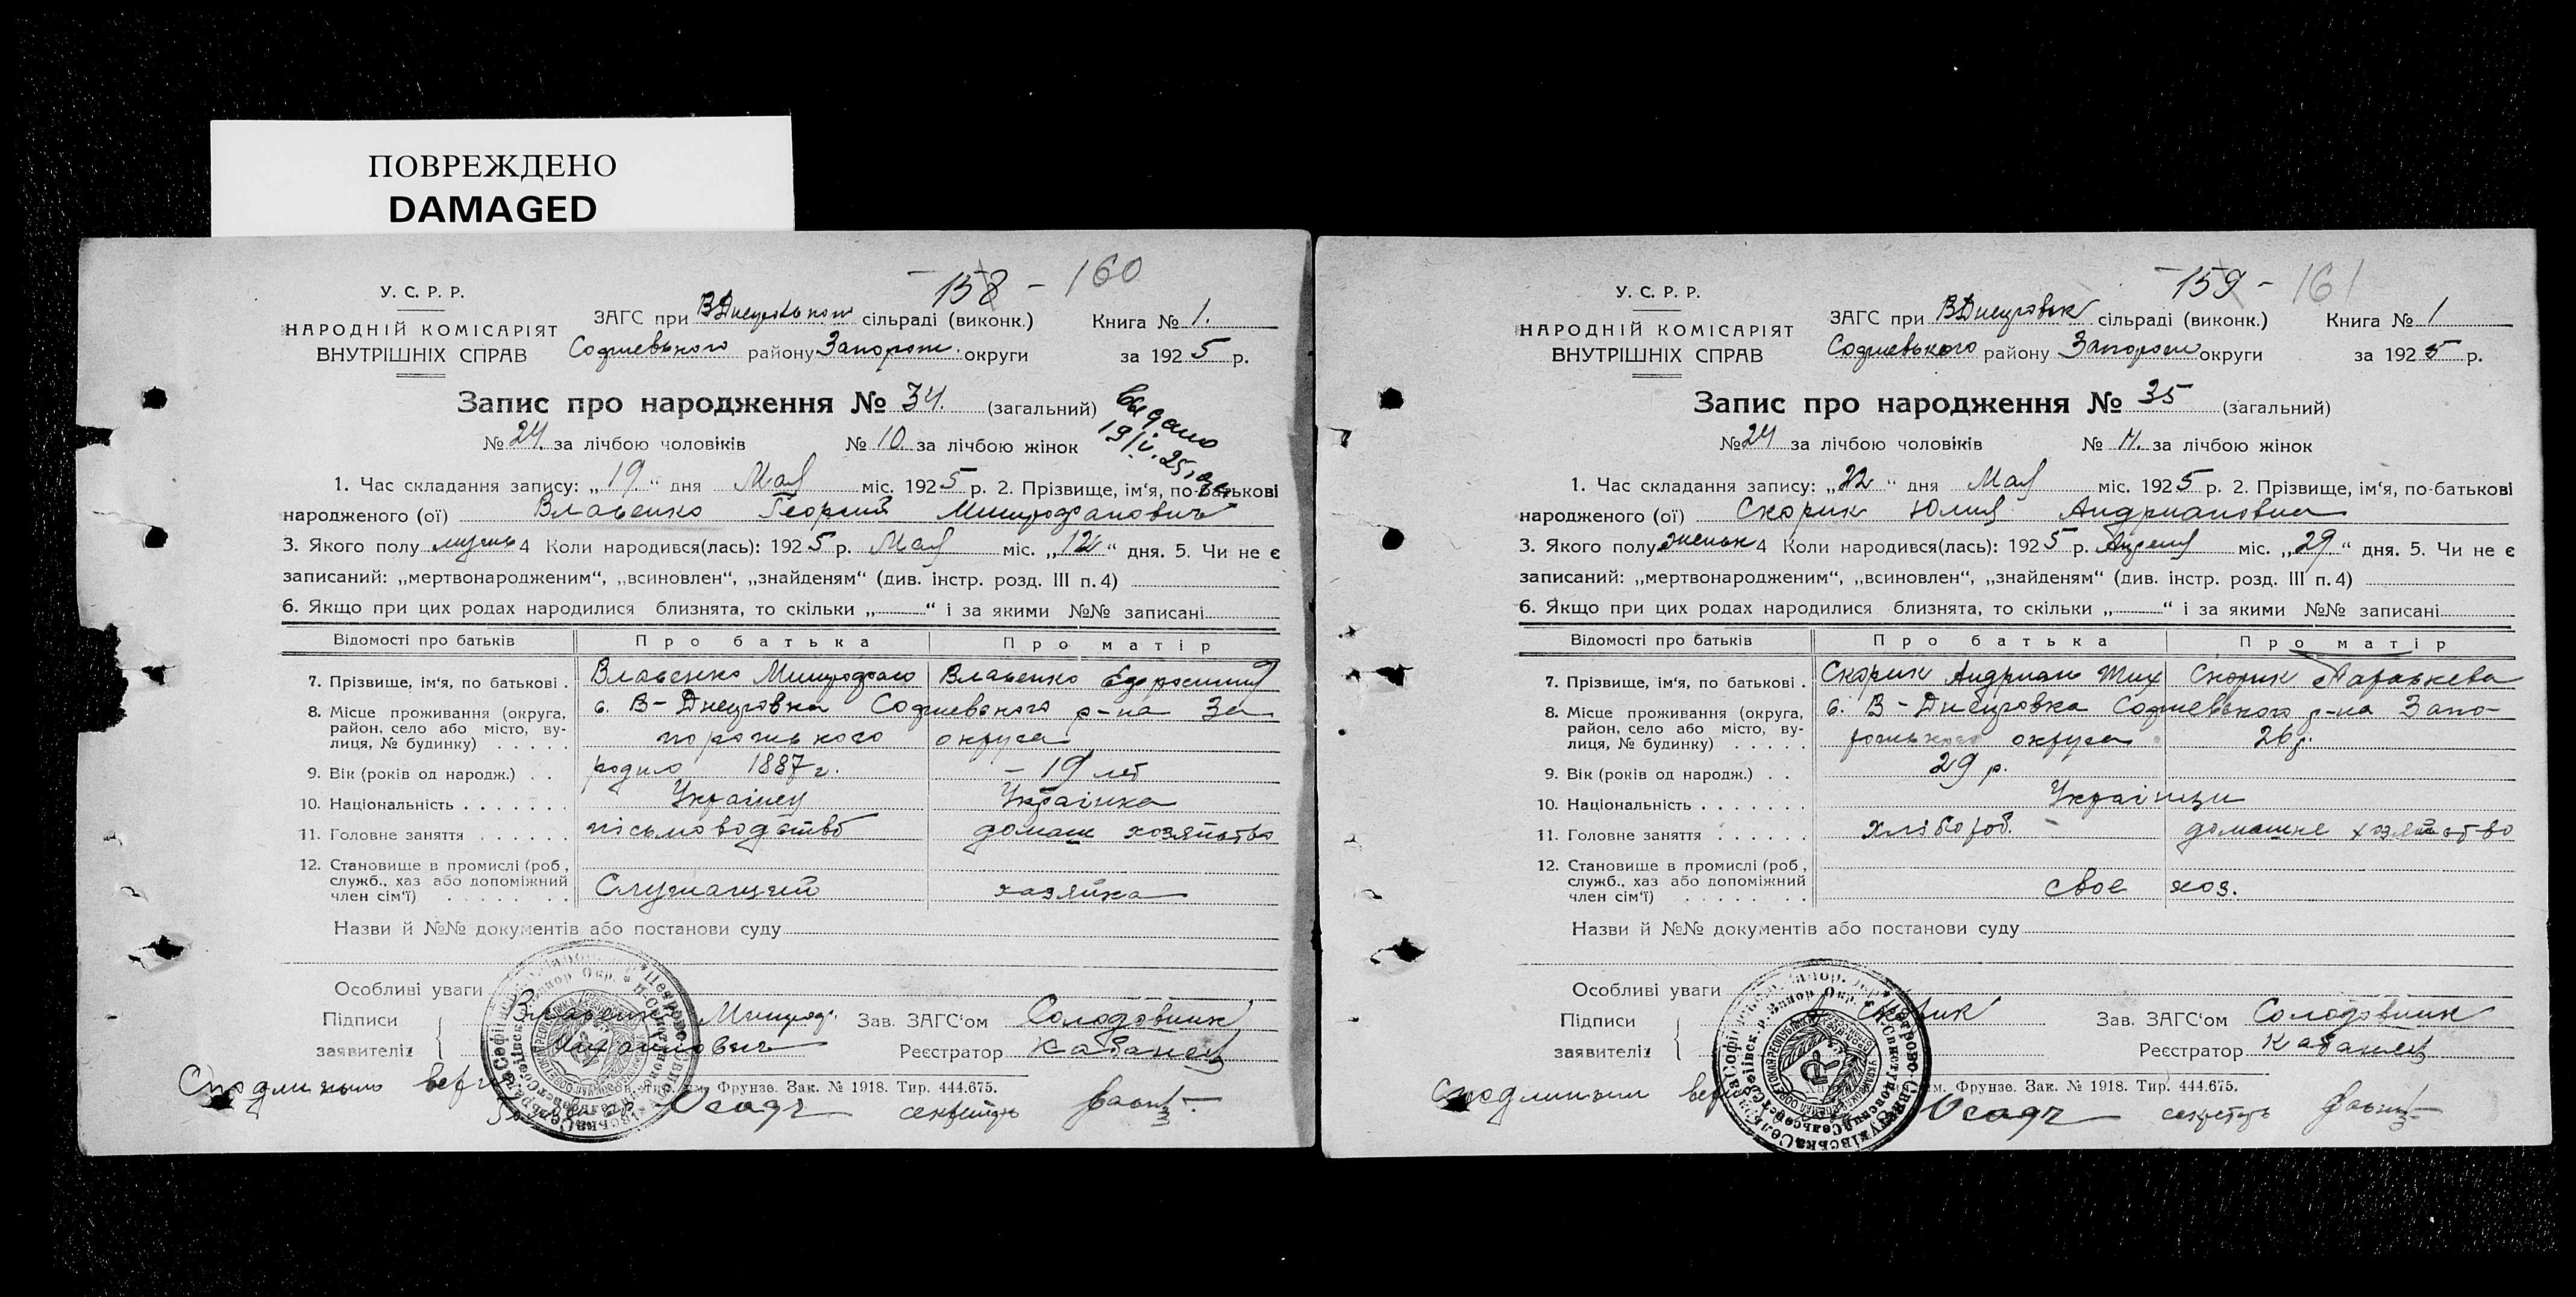 ПОВРЕЖДЕНО
DAMAGED
158 - 160
У. С. Р. Р.
НАРОДНІЙ КОМІСАРІЯТ
ВНУТРІШНІХ СПРАВ
ЗАГС при сільраді (виконк.) Книга № 1.
району Запорож. округи за 1925 р.
Запис про народження № 34. (загальний)
видано
№ 24. за лічбою чоловіків № 10. за лічбою жінок
1. Час складання запису: „19.“ дня Мая міс. 1925 р. 2. Прізвище, ім‘я, по-батькові
народженого (ої) Власенко Георгий Митрофанович
3. Якого полу мужь 4 Коли народився(лась): 1925 р. Мая міс. „12“ дня. 5. Чи не є
записаний: „мертвонародженим“, „всиновлен“, „знайденям“ (див. інстр. розд. III п. 4)
6. Якщо при цих родах народилися близнята, то скільки „ “ і за якими №№ записані
Відомості про батьків Про батька Про матір
7. Прізвище, ім‘я, по батькові . Власенко Власенко
8. Місце проживання (округа, с. В-Днепровка Софиевского р-на За
район, село або місто, ву-
лиця, № будинку) . . . . . округа
9. Вік (років од народж.) . . 1887 г. - 19 лет
10. Національність . . . . . . . Українец Українка
11. Головне заняття . . . . . . письмоводство домаш хозяйство
12. Становище в промислі (роб,
служб., хаз або допоміжний Служащий хазяйка
член сім‘ї) . . . . . . . .
Назви й №№ документів або постанови суду
Особливі уваги
Підписи Власенко Зав. ЗАГС‘ом Солодовник
заявителів Реєстратор
Фрунзе. Зак. № 1918. Тир. 444.675.
С подлинным верно
Осадч секретарь
159 - 161
У. С. Р. Р.
НАРОДНІЙ КОМІСАРІЯТ
ВНУТРІШНІХ СПРАВ
ЗАГС при ВДнепровск сільраді (виконк.) Книга № 1
району Запорож округи за 1925 р.
Запис про народження № 35 (загальний)
№ 24 за лічбою чоловіків № 11. за лічбою жінок
1. Час складання запису: „22“ дня Мая міс. 1925 р. 2. Прізвище, ім‘я, по-батькові
народженого (ої) Скорик Юлия Андриановна
3. Якого полу женьк 4 Коли народився(лась): 1925 р. Апреля міс. „29“ дня. 5. Чи не є
записаний: „мертвонародженим“, „всиновлен“, „знайденям“ (див. інстр. розд. III п. 4)
6. Якщо при цих родах народилися близнята, то скільки „ “ і за якими №№ записані
Відомості про батьків Про батька Про матір
7. Прізвище, ім‘я, по батькові . Скорик Андриан Тих Скорик Параскева
8. Місце проживання (округа, с. В-Днепровка Софиевского р-на Запо-
район, село або місто, ву-
лиця, № будинку) . . . . . округа 26 р.
9. Вік (років од народж.) . . 29 р.
10. Національність . . . . . . . Українци
11. Головне заняття . . . . . . хлібороб. домашне хозяйство
12. Становище в промислі (роб,
служб., хаз або допоміжний свое хоз.
член сім‘ї) . . . . . . . .
Назви й №№ документів або постанови суду
Особливі уваги
Підписи Скорик Зав. ЗАГС‘ом Солодовник
заявителів Реєстратор
Фрунзе. Зак. № 1918. Тир. 444.675.
С подлинным верно
Осадч секретарь